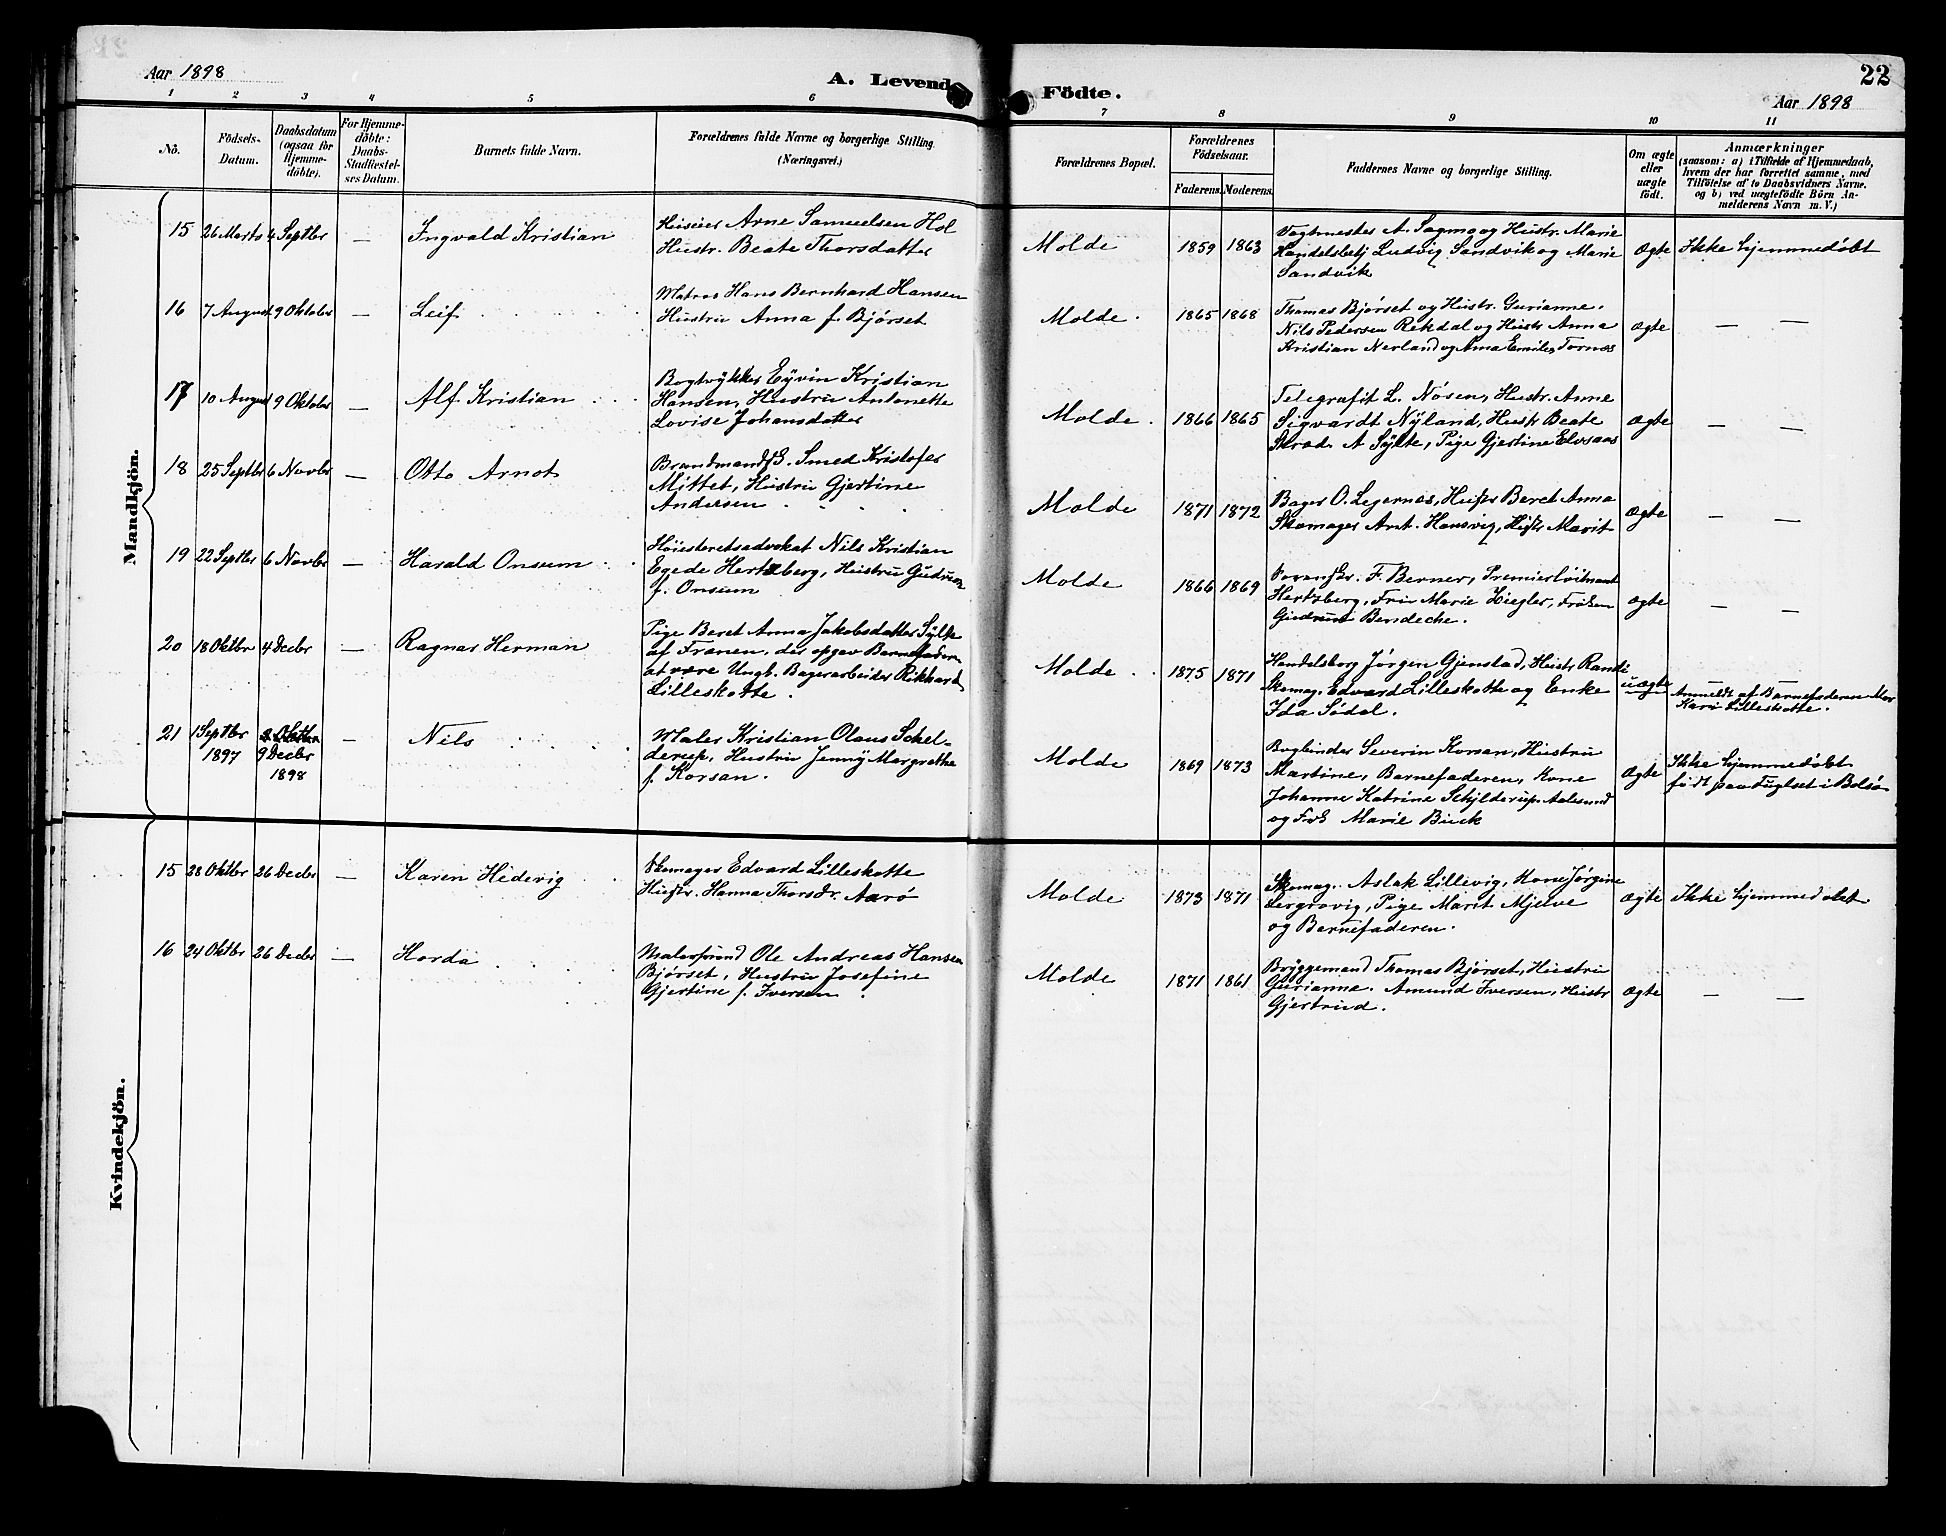 Aar 1898
A. Levende Födte.
22
Aar 1898
1 2 3 4 5 6 7 8 9 10 11
Nô.
Födsels-
Datum.
Daabsdatum
(ogsaa for
Hjemme-
döbte).
For Hjemme-
döbte:
Daabs-
Stadfæstel-
ses Datum.
Barnets fulde Navn.
Forældrenes fulde Navne og borgerlige Stilling.
(Næringsvei.)
Forældrenes Bopæl.
Forældrenes
Födselsaar.
Faderens. Moderens.
Faddernes Navne og borgerlige Stilling.
Om ægte
eller
uægte
födt.
Anmærkninger
(saasom: a) i Tilfælde af Hjemmedaab,
hvem der har forrettet samme, med
Tilföielse af to Daabsvidners Navne,
og b) ved uægtefödte Börn An-
melderens Navn m. V.)
Mandkjön.
15 26 Marts 4 Septbr — Ingvald Kristian
Huseier Arne Samuelsen Hol
Hustr. Beate Thorsdatter
Molde 1859 1863
A. Sagmo og Hustr. Marie
Handelsbetj Ludvig Sandvik og Marie
Sandvik
Ægte Ikke hjemmedøbt
16 7 August 9 Oktober — Leif
Matros Hans Bernhard Hansen
Hustru Anna f. Bjørset
Molde. 1865 1868
Thomas Bjørset og Hustr. Gurianne.
Nils Pedersen Rekdal og Hustr Anna
Kristian Nerland og Anna Emilie Tornæs
Ægte — —
17 10 August 9 Oktober — Alf Kristian
Bogtrykker Eyvin Kristian
Hansen, Hustru Antonette
Lovise Johansdatter
Molde. 1866 1865
Telegrafit L. Nøsen, Hustr. Anne
Sigvardt Nyland, Hustr Beate
Skræd. A Sylte, Pige Gjertine Elvsaas
Ægte — —
18 25 Septbr 6 Novbr — Otto Arnot
Smed Kristofer
Mittet, Hustru Gjertine
Andersen
Molde 1871 1872
Bager O. Legernæs, Hustr Beret Anna
Skomager Ant. Hansvig, Hustr Marit
Ægte — —
19 22 Septbr 6 Novbr — Harald Onsum
Høiesteretsadvokat Nils Kristian
Egede Hertzberg, Hustru Gudrun
f. Onsum
Molde 1866 1869
F. Berner, Premierløitnant
Hertzberg, Fru Marie Ziegler, Frøken
Gudrun Bendeche.
Ægte — —
20 18 Oktbr 4 Decbr — Ragnar Herman
Pige Beret Anna Jakobsdatter Sylte
af Frænen, der opgav Barnefaderen
at være Ungk. Bagerarbeider Rikhard
Lilleskotte.
Molde. 1875 1871
Handelsborg Jørgen Gjenstad, Hustr Randi
Skomag. Edvard Lilleskotte og Enke
Ida Sødal.
uægte —
Anmeldt af Barnefaderen Mor
Kari Lilleskotte.
21 1 Septbr
1897
9 Decbr
1898
— Nils
Maler Kristian Olaus Schel-
derup, Hustru Jenny Margrethe
f. Korsan.
Molde 1869 1873
Bogbinder Severin Korsan, Hustru
Martine, Barnefaderen, Kone
Johanne Katrine Schjlderup Aalesund
og Frk Marie Buck
Ægte
Ikke hjemmedøbt
født paa Fuglset i Bolsø
Kvindekjön.
15 28 Oktbr 26 Decbr — Karen Hedevig
Skomager Edvard Lilleskotte
Hustr. Hanna Thorsdr. Aarø
Molde 1873 1871
Skomag. Aslak Lillevig, Kone Jørgine
Lergrovig, Pige Marit Mjelve
og Barnefaderen.
Ægte Ikke hjemmedøbt
16 24 Oktbr 26 Decbr — Horda
Ole Andreas Hansen
Bjørset, Hustru Josefine
Gjertine f. Iversen
Molde 1871 1861
Bryggemand Thomas Bjørset, Hustru
Gurianne. Amund Iversen, Hustr
Gjertrud.
Ægte — —